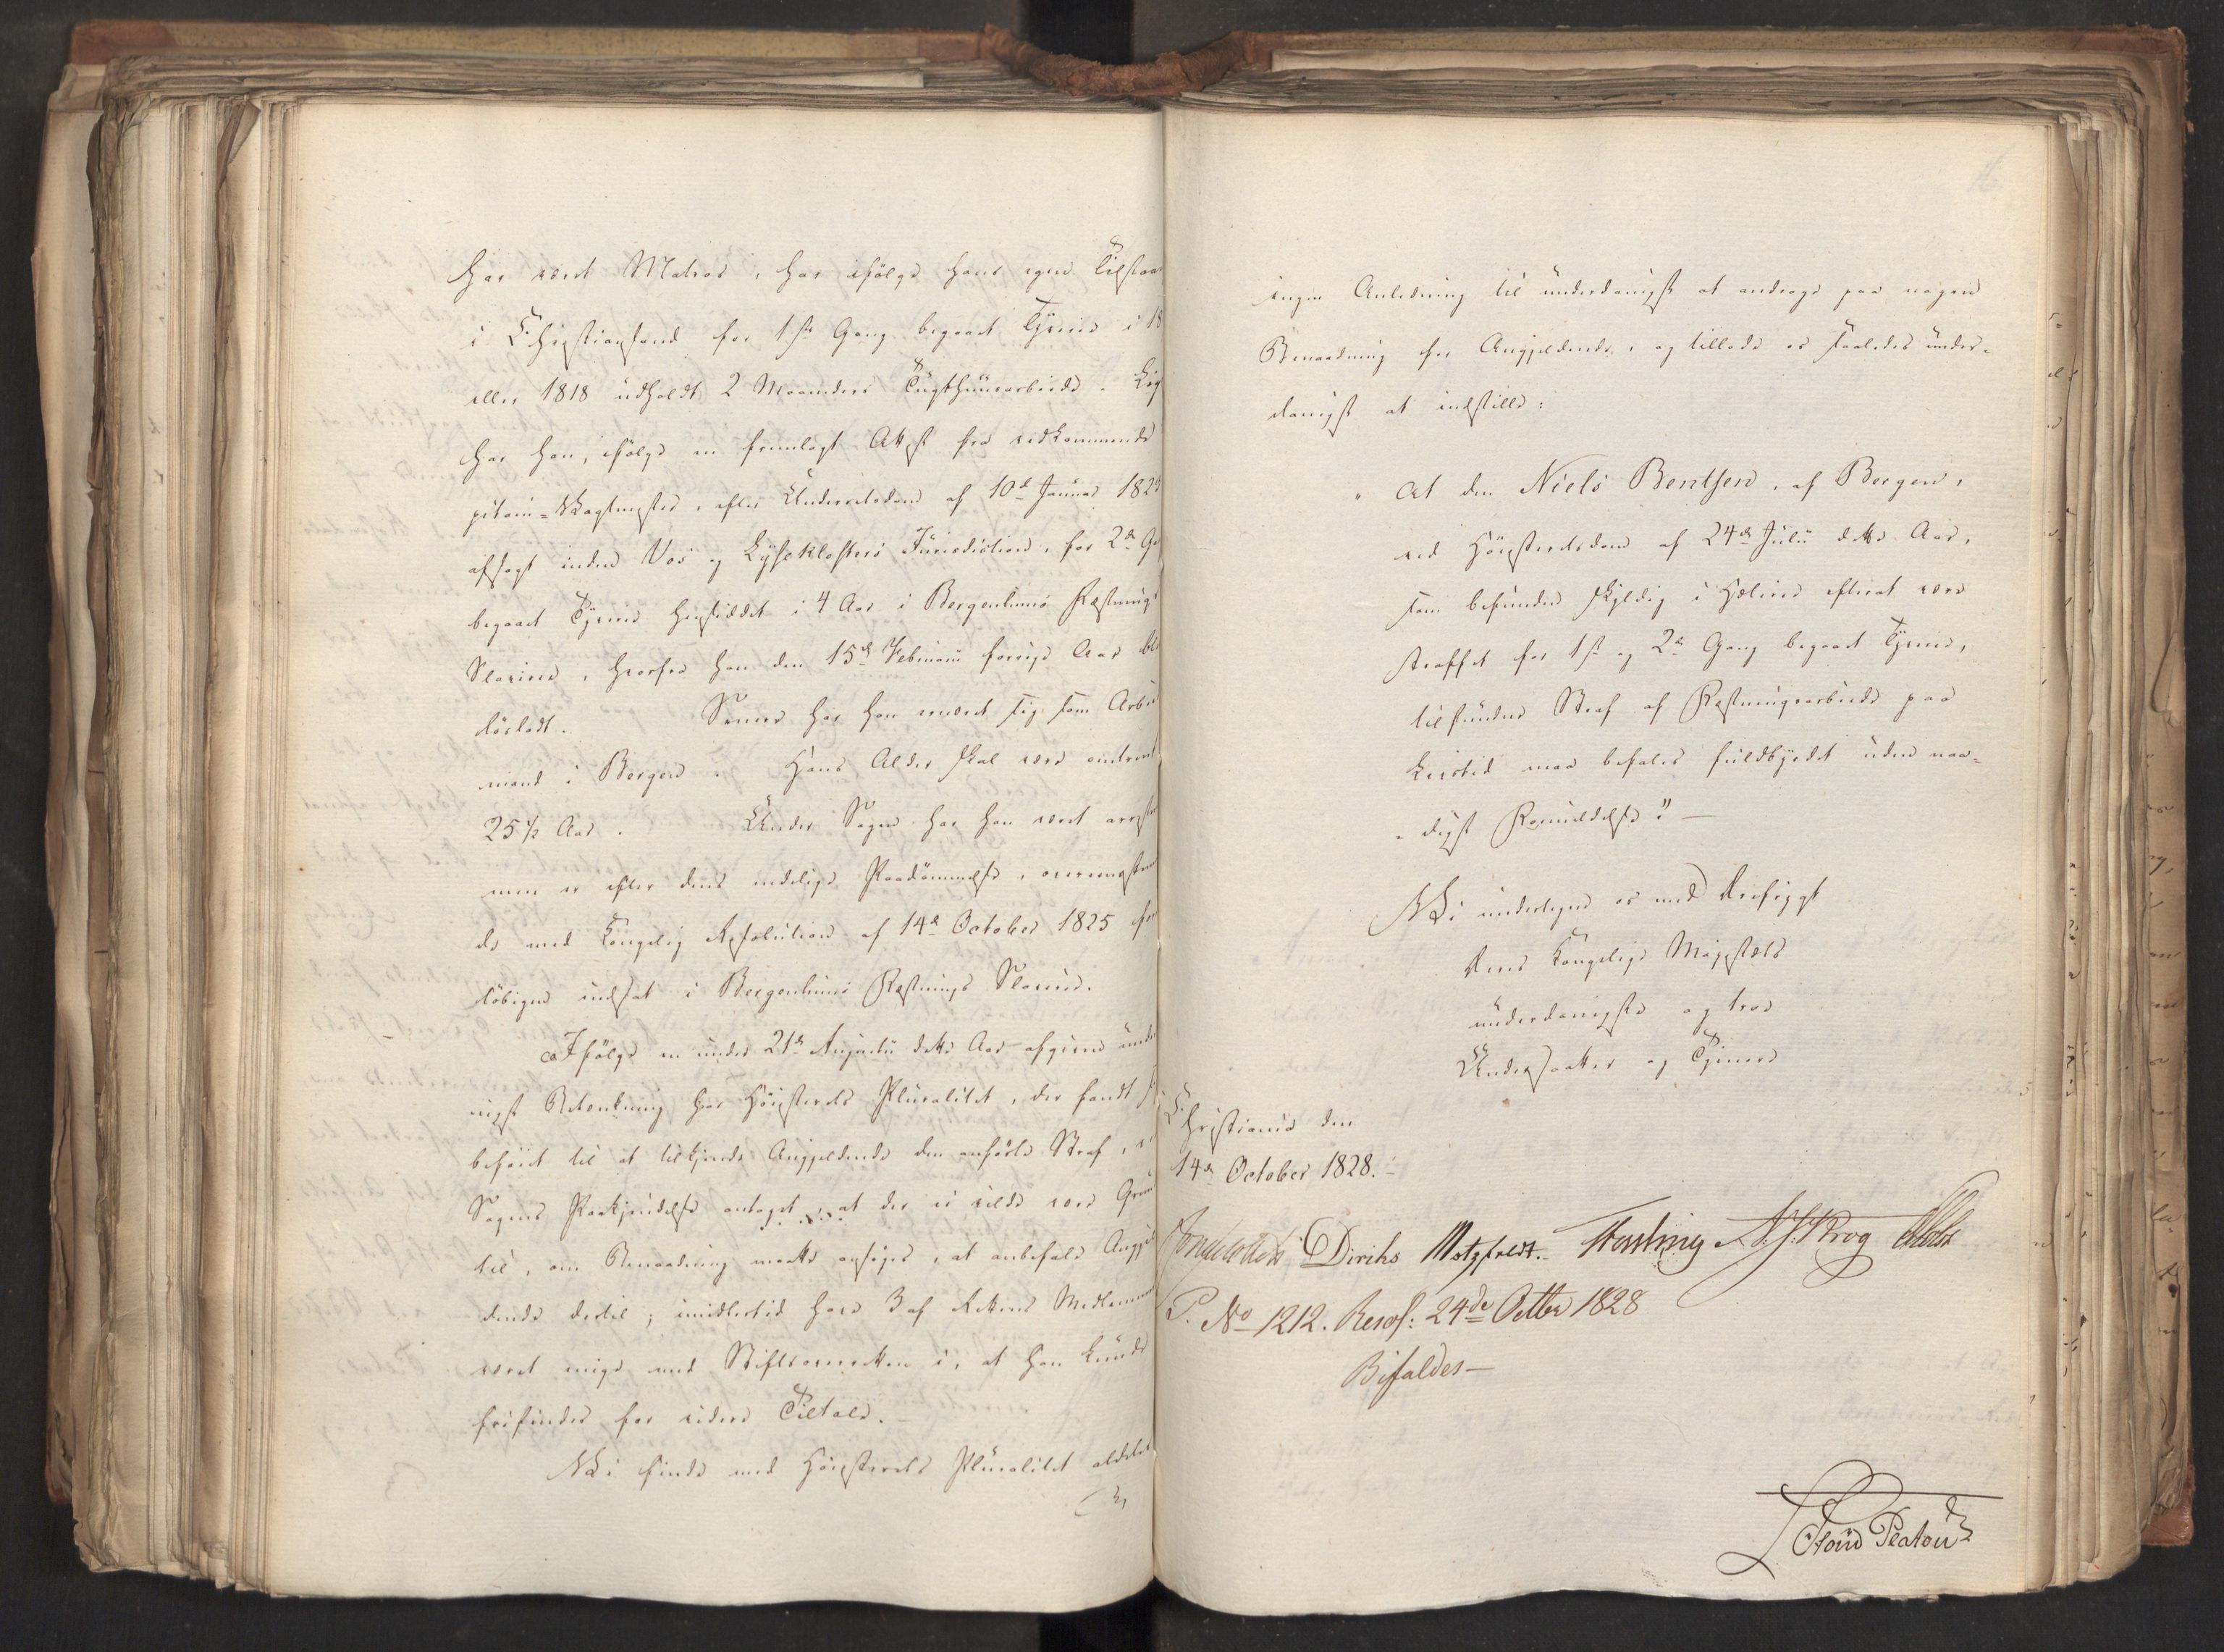 har været Matros, har ifølge hans egen Tilstaa
i Christiansand for 1ste Gang begaaet Tyverie i 18
eller 1818 udholdt 2 Maaneders Tugthuusarbeide. Lig
har han, ifølge en fremlagt Attest fra vedkommende
pitain-Vagtmester, efter Underretsdom af 10de Januar 182
afsagt inden Vos og Lyseklosters Jurisdiction, for 2den Ga
begaaet Tyverie hensiddet i 4 Aar i Bergenhuus Fæstnings
Slaverie, hvorfra han den 15de Februarii forrige Aar ble
løsladt. Senere har han ernæret sig som Arbei
mand i Bergen. Hans Alder skal være omtrent
25 1/2 Aar. Under Sagen har han været arreste
men er efter dens endelige Paadømmelse, overeensstem
de med Kongelig Resolution af 14de October 1825 for
løbigen indsat i Bergenhuus Fæstnings Slaverie.
Ifølge en under 21de Augustii dette Aar afgiven under
nigst Betænkning har Høiesterets Pluralitet, der fandt si
beføiet til at tilkjende Angjeldende den anførte Straf, ve
Sagens Paakjendelse antaget, at der ei vilde være Grun
til, om Benaadning maatte ansøges, at anbefale Angjel
dende dertil; imidlertid have 3 af Rettens Medlemmer
været enige med Stiftsoverretten i, at han kunde
frifindes for videre Tiltale.
Vi finde med Høiesterets Pluralitet aldeles
ingen Anledning til underdanigst at andrage paa nogen
Benaadning for Angjeldende, og tillade os saaledes under-
danigst at indstille:
"At den Niels Bentsen, af Bergen,
ved Høiesteretsdom af 24de Julii dette Aar,
som befunden skyldig i Hælerie efterat være
straffet for 1ste og 2den Gang begaaet Tyverie,
tilfunden Straf af Fæstningsarbeide paa
Livstid maa befales fuldbyrdet uden naa-
digst Formildelse." —
Vi undertegne os med Ærefrygt
Deres Kongelige Majestæts
underdanigste og troe
Undersaatter og Tjenere
Christiania den
14de October 1828. -
Diriks Motzfeldt. Fasting N. J. Krog
P. No 1212. Resol: 24de Octber 1828
Bifaldes —
Stoud Platou